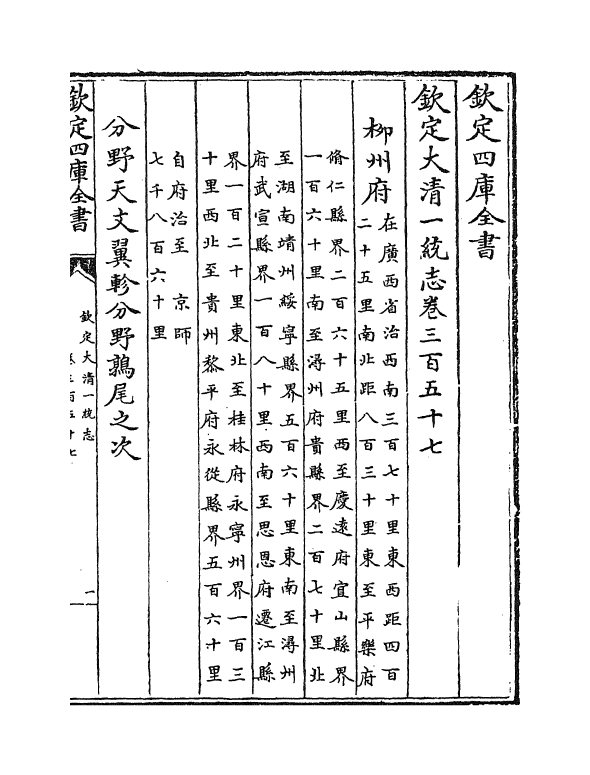 欽定四庫全書
欽定大清一統志卷三百五十七
柳州府
在廣西省治西南三百七十里東西距四百
二十五里南北距八百三十里東至平樂府
脩仁縣界二百六十五里西至慶遠府宜山縣界
一百六十里南至潯州府貴縣界二百七十里北
至湖南靖州綏寧縣界五百六十里東南至潯州
府武宣縣界一百八十里西南至思恩府遷江縣
界一百二十里東北至桂林府永寧州界一百三
十里西北至貴州黎平府永從縣界五百六十里
自府治至 京師
七千八百六十里
分野天文翼軫分野鶉尾之次
欽定四庫全書
欽定大清一統志
卷三百五十七
一